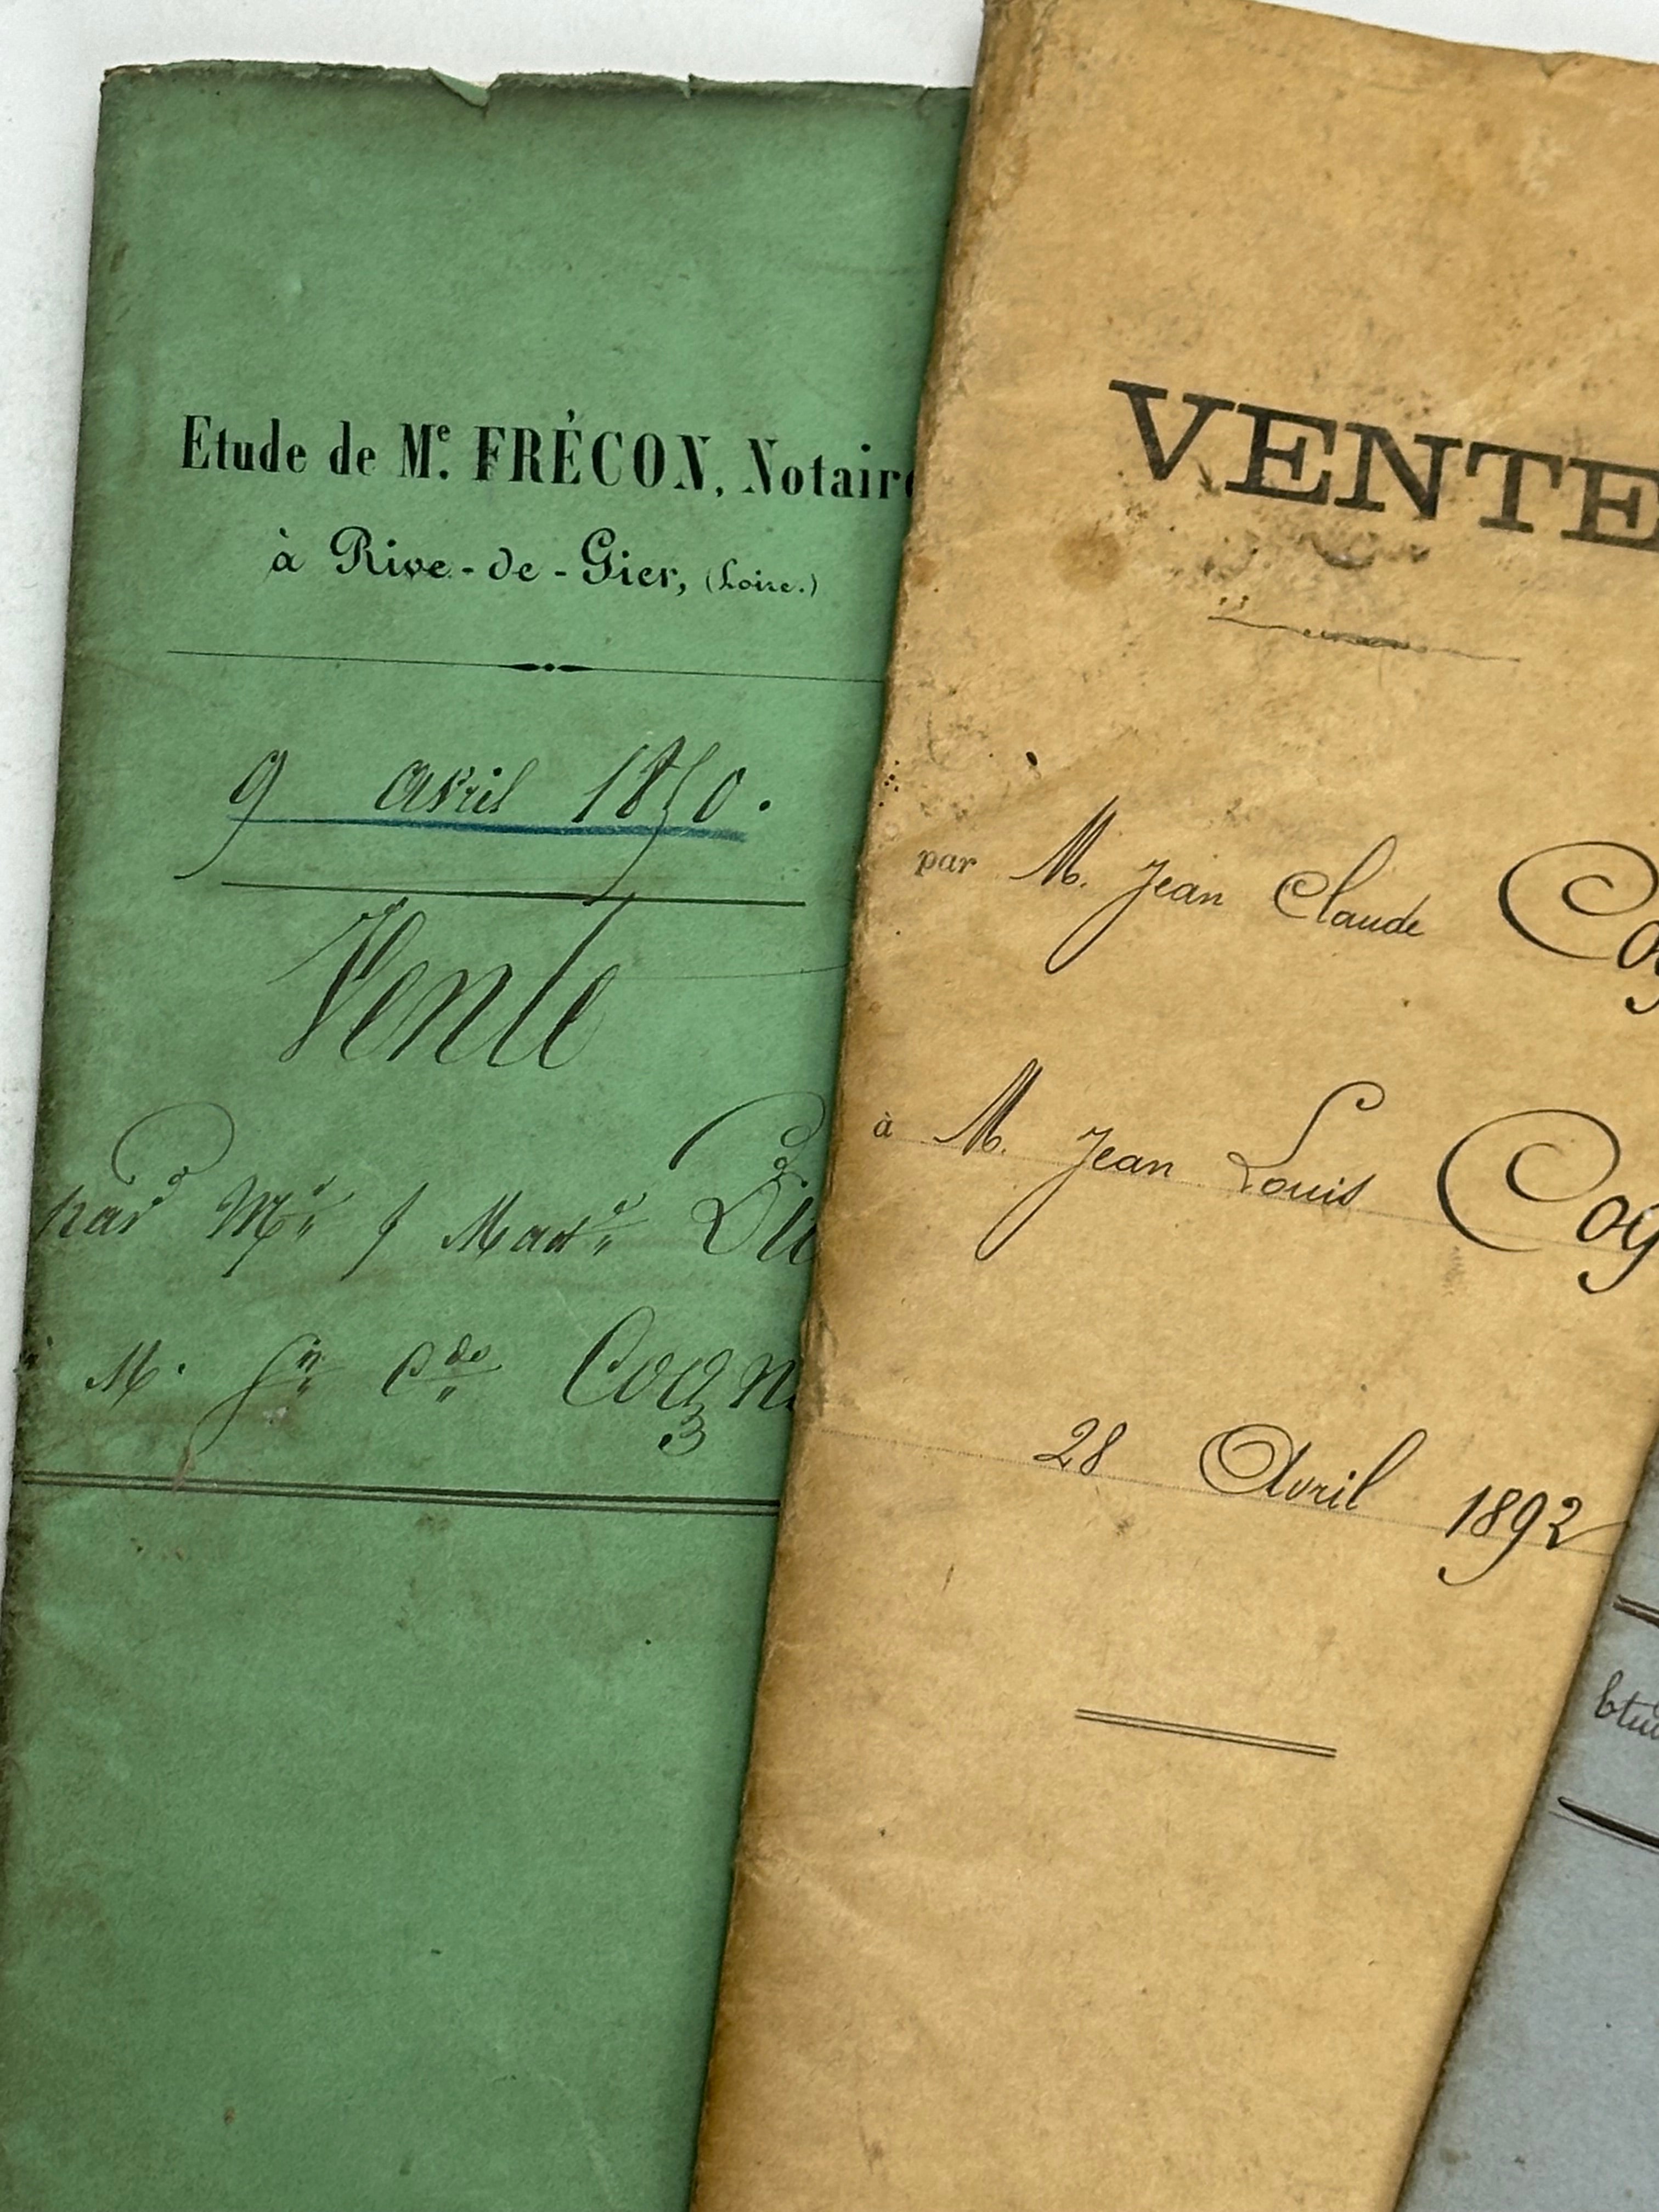 Etude de Me. FRÉCON, Notaire
à Rive-de-Gier, (Loire.)
9 avril 1850.
Vente
par Mr & Made Du
à M. Jn Cde Cogn
3
VENTE
par M. Jean Claude Cog
à M. Jean Louis Cog
28 Avril 1892
Etu